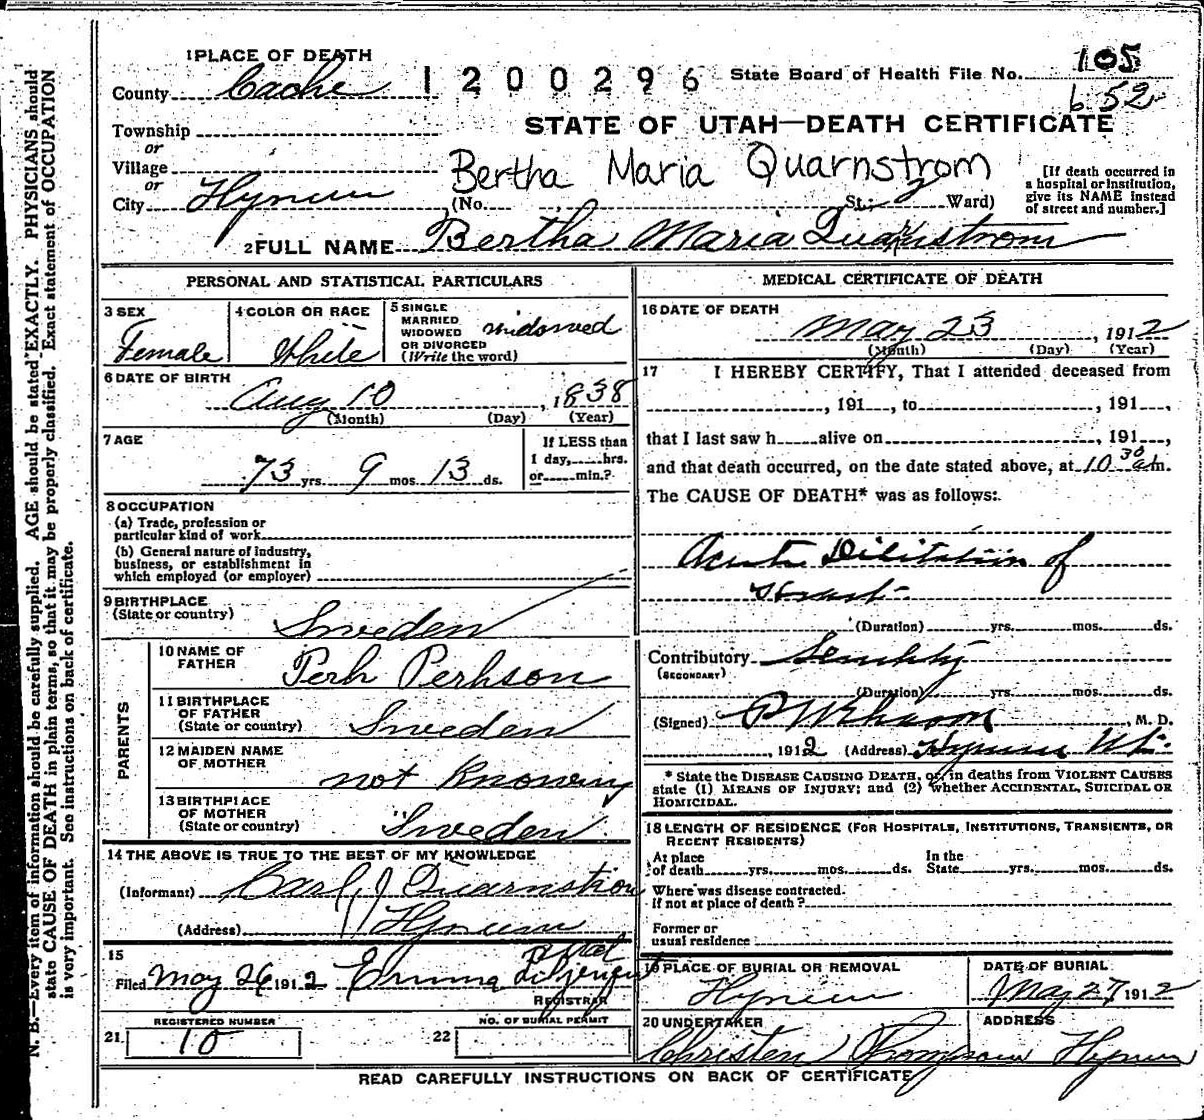 1 PLACE OF DEATH
County Cache
1200296
State Board of Health File No. 105
652
Township
or
Village
or
City Hyrum
STATE OF UTAH—DEATH CERTIFICATE
Bertha Maria Quarnstrom
(No. St.; 2 Ward)
[If death occurred in
a hospital or institution,
give its NAME instead
of street and number.]
2 FULL NAME Bertha Maria Quarnstrom
PERSONAL AND STATISTICAL PARTICULARS
3 SEX
Female
4 COLOR OR RACE
White
5 SINGLE
MARRIED
WIDOWED
OR DIVORCED
(Write the word)
widowed
6 DATE OF BIRTH
Aug 10, 1838
(Month) (Day) (Year)
7 AGE
73 yrs. 9 mos. 13 ds.
If LESS than
1 day, hrs.
or min.?
8 OCCUPATION
(a) Trade, profession or
particular kind of work
(b) General nature of industry,
business, or establishment in
which employed (or employer)
9 BIRTHPLACE
(State or country)
Sweden
PARENTS
10 NAME OF
FATHER
Perh Perhson
11 BIRTHPLACE
OF FATHER
(State or country)
Sweden
12 MAIDEN NAME
OF MOTHER
not Knowing
13 BIRTHPLACE
OF MOTHER
(State or country)
Sweden
14 THE ABOVE IS TRUE TO THE BEST OF MY KNOWLEDGE
(Informant) Carl J Quarnstrom
(Address) Hyrum
15
Filed May 26 1912 Emma
REGISTRAR
REGISTERED NUMBER
21. 10
NO. OF BURIAL PERMIT
22
MEDICAL CERTIFICATE OF DEATH
16 DATE OF DEATH
May 23, 1912
(Month) (Day) (Year)
17 I HEREBY CERTIFY, That I attended deceased from
, 191 , to , 191 ,
that I last saw h alive on , 191 ,
and that death occurred, on the date stated above, at 10 30 a.m.
The CAUSE OF DEATH* was as follows:
Acute Dilitation of
Heart
(Duration) yrs. mos. ds.
Contributory Senility
(SECONDARY)
(Duration) yrs. mos. ds.
(Signed) , M. D.
, 1912 (Address) Hyrum Ut.
* State the DISEASE CAUSING DEATH, or, in deaths from VIOLENT CAUSES
state (1) MEANS OF INJURY; and (2) whether ACCIDENTAL, SUICIDAL OR
HOMICIDAL.
18 LENGTH OF RESIDENCE (FOR HOSPITALS, INSTITUTIONS, TRANSIENTS, OR
RECENT RESIDENTS)
At place
of death yrs. mos. ds.
In the
State yrs. mos. ds.
Where was disease contracted.
If not at place of death?
Former or
usual residence
19 PLACE OF BURIAL OR REMOVAL
Hyrum
DATE OF BURIAL
May 27 1912
20 UNDERTAKER
Christen Thompson
ADDRESS
Hyrum
READ CAREFULLY INSTRUCTIONS ON BACK OF CERTIFICATE
N. B.—Every item of information should be carefully supplied. AGE should be stated EXACTLY. PHYSICIANS should
state CAUSE OF DEATH in plain terms, so that it may be properly classified. Exact statement of OCCUPATION
is very important. See instructions on back of certificate.